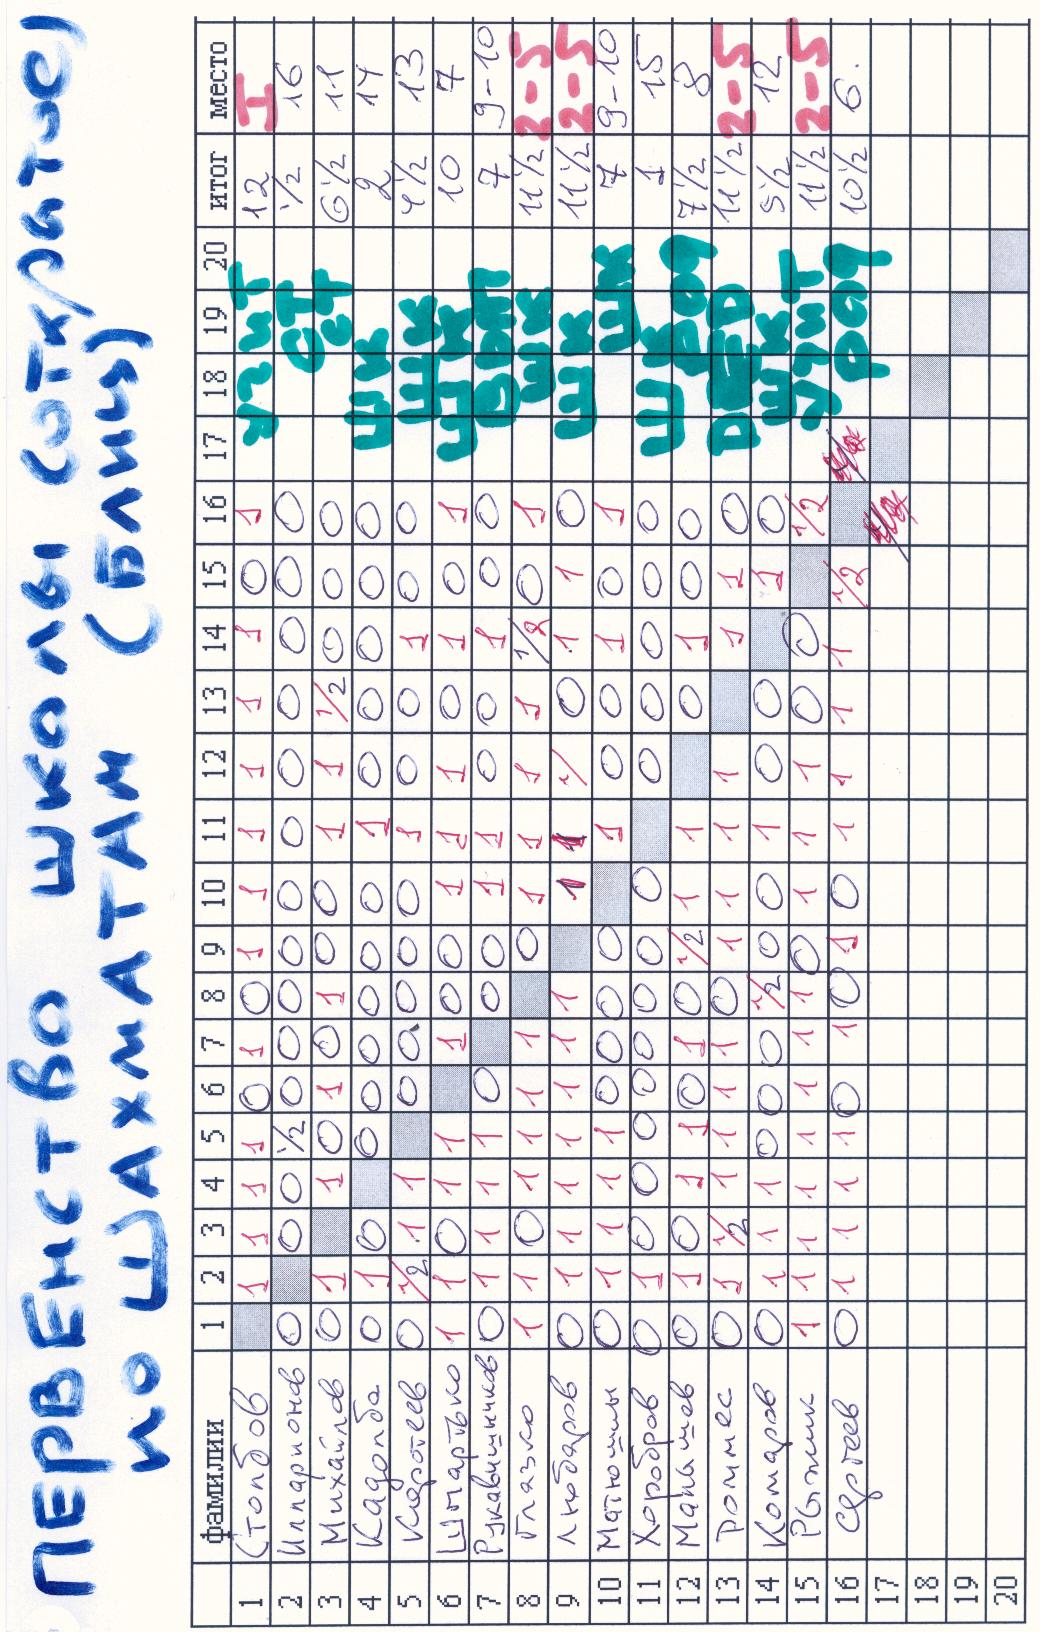 ПЕРВЕНСТВО ШКОЛЫ (ОТКРЫТОЕ)
ПО ШАХМАТАМ (БЛИЦ)
фамилии 1 2 3 4 5 6 7 8 9 10 11 12 13 14 15 16 17 18 19 20 итог место
1 Столбов 1 1 1 1 0 1 0 1 1 1 1 1 1 0 1 12 I
2 Илларионов 0 0 0 1/2 0 0 0 0 0 0 0 0 0 0 0 СТ 1/2 16
3 Михайлов 0 1 1 0 1 0 1 0 0 1 1 1/2 0 0 0 СТ 6 1/2 11
4 Кадолба 0 1 0 0 0 0 0 0 0 1 0 0 0 0 0 ШК 2 14
5 0 1/2 1 1 0 0 0 0 0 1 0 0 1 0 0 ШК 4 1/2 13
6 Шпартько 1 1 0 1 1 1 0 0 1 1 1 0 1 0 1 ШК 10 7
7 Рукавишников 0 1 1 1 1 0 0 0 1 1 0 0 1 0 0 7 9-10
8 Глазко 1 1 0 1 1 1 1 0 1 1 1 1 1/2 0 1 ШК 11 1/2 2-5
9 Любаров 0 1 1 1 1 1 1 1 1 1 1/ 0 1 1 0 ШК 11 1/2 2-5
10 Матюшин 0 1 1 1 1 0 0 0 0 1 0 0 1 0 1 ШК 7 9-10
11 Хоробров 0 1 0 0 0 0 0 0 0 0 0 0 0 0 0 ШК 1 15
12 Малышев 0 1 0 1 1 0 1 0 1/2 1 1 0 1 0 0 7 1/2 8
13 Роммес 0 1 1/2 1 1 1 1 0 1 1 1 1 1 1 0 11 1/2 2-5
14 Комаров 0 1 1 1 0 0 0 1/2 0 0 1 0 0 1 0 ШК 5 1/2 12
15 Рыжик 1 1 1 1 1 1 1 1 0 1 1 1 0 0 1/2 УЧИТ 11 1/2 2-5
16 Сергеев 0 1 1 1 1 0 1 0 1 0 1 1 1 1 1/2 10 1/2 6.
17
18
19
20